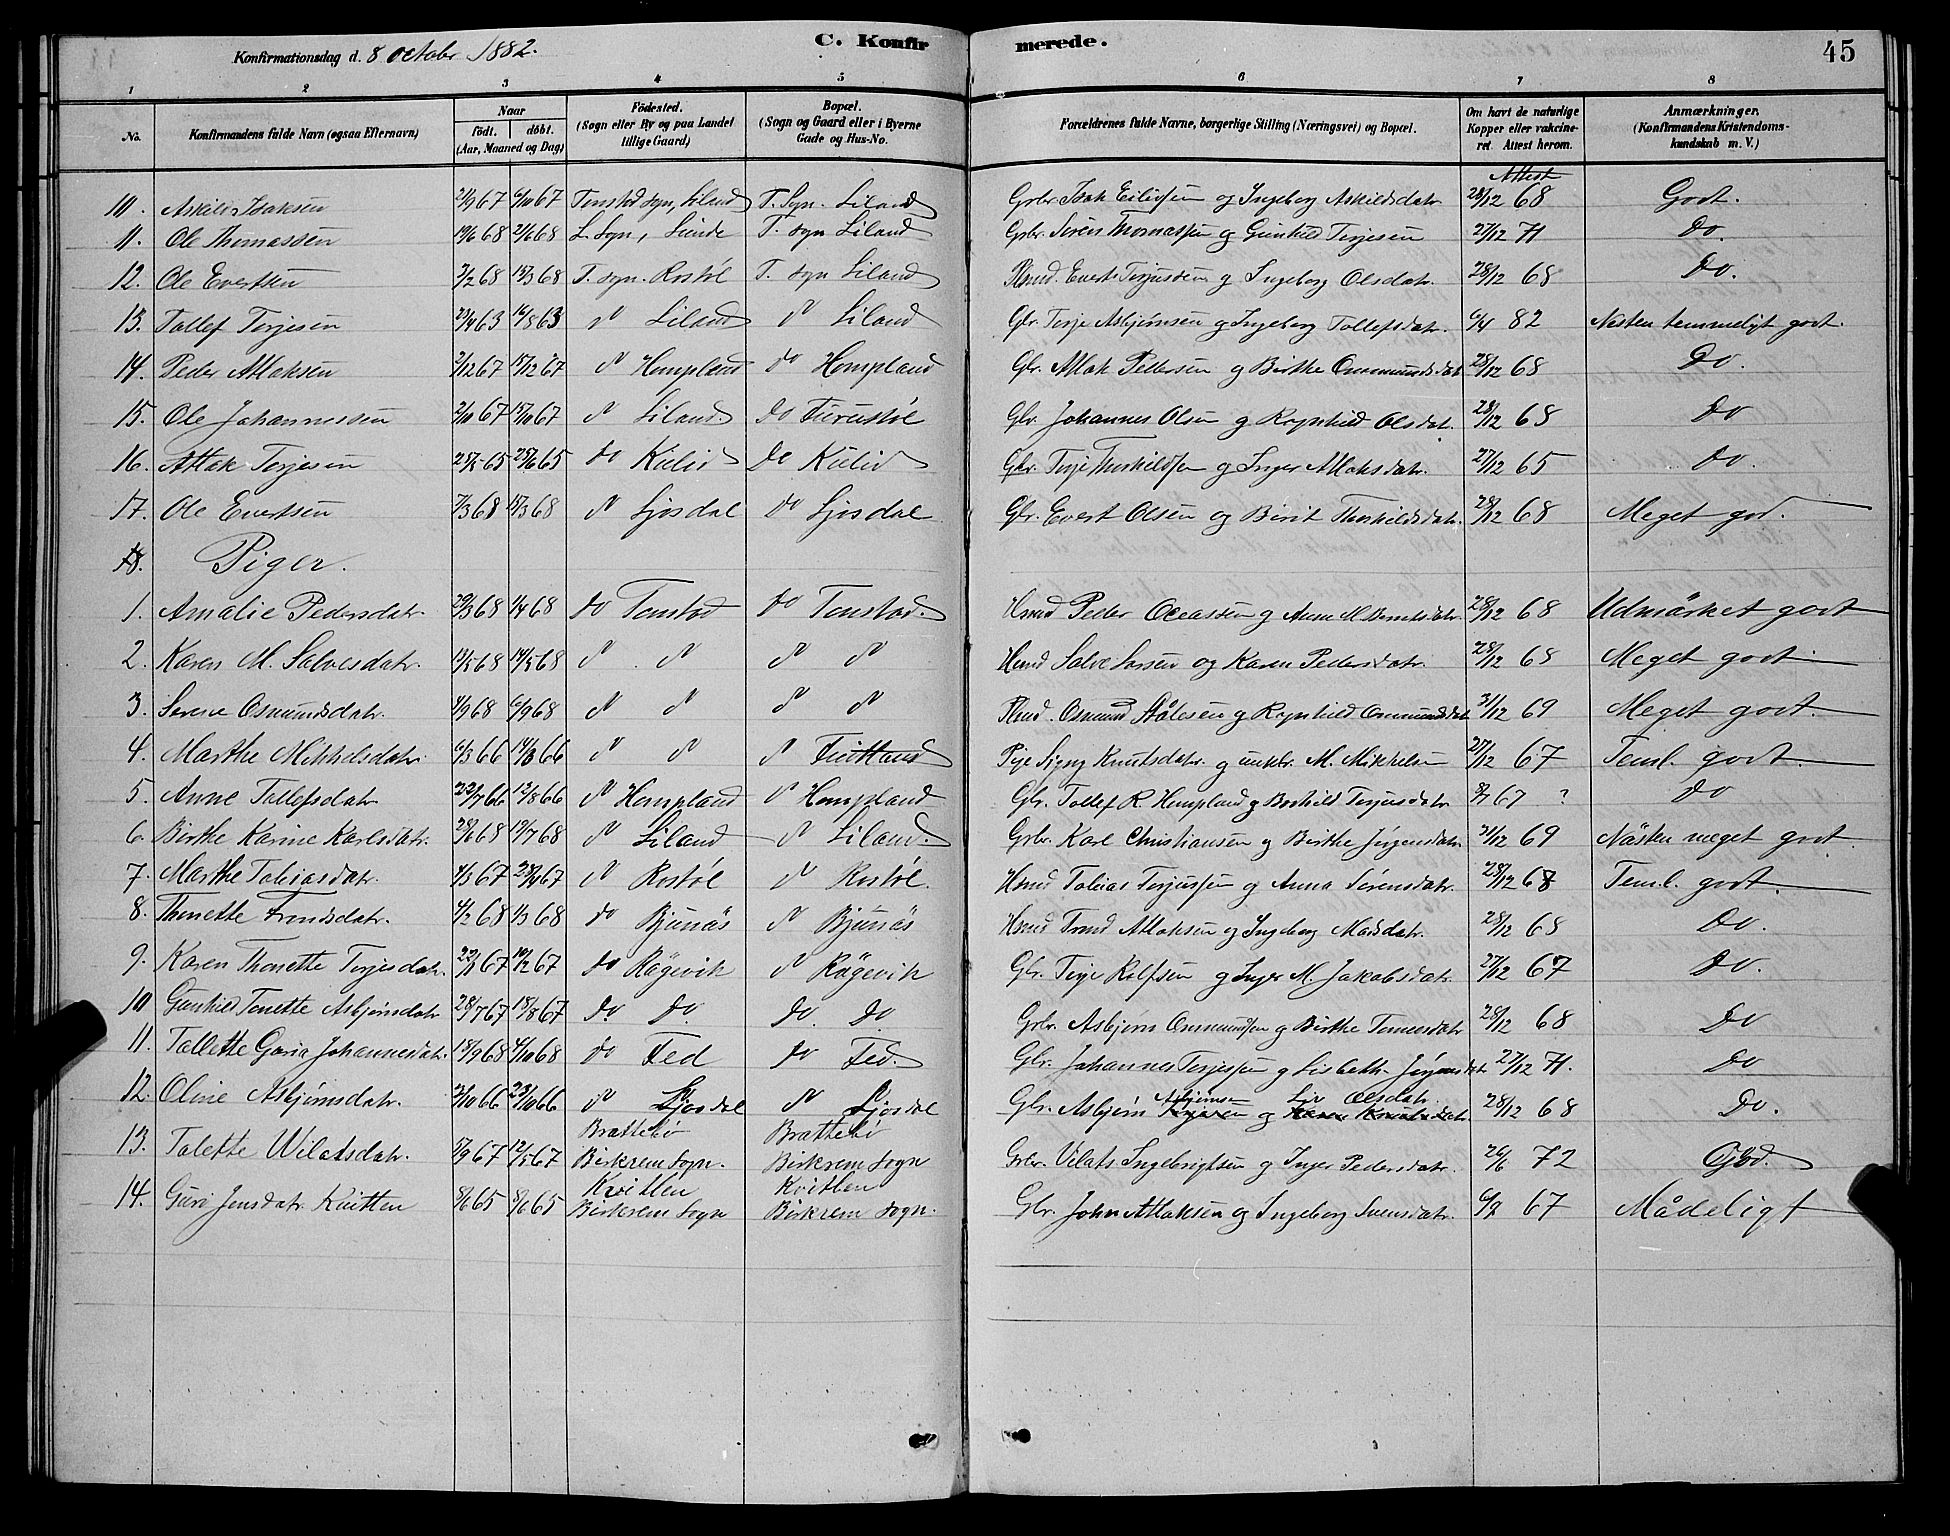 Konfirmationsdag d. 8 october 1882. C. Konfirmerede. 45
1 2 3 4 5 6 7 8
No. Konfirmandens fulde Navn (ogsaa Efternavn) Naar födt. döbt. (Aar, Maaned og Dag) Födested. (Sogn eller By og paa Landet tillige Gaard) Bopæl. (Sogn og Gaard eller i Byerne Gade og Hus-No. Forældrenes fulde Navne, borgerlige Stilling (Næringsvei) og Bopæl. Om havt de naturlige Kopper eller vakcineret. Attest herom. Anmærkninger. (Konfirmandens Kristendomskundskab m. V.)
Attest
10. Askild Isaksen 67 6/10 67 Tonstad sogn, Liland T. Sgn. Liland Grbr. Isak Eilivsen og Ingeborg Askildsdatr. 28/12 68 Godt.
11. Ole Thomassen 19/6 68 21/6 68 L. Sogn, Sunde T. sogn Liland Grbr. Sören Thomassen og Gunhild Terjesen 27/12 71 Do.
12. Ole Evertsen 2/2 68 15/3 68 T. sogn. Rostøl T. sogn Liland Hsmd. Evert Terjussen og Ingeborg Olsdatr. 28/12 68 Do.
13. Tollef Terjesen 23/4 63 16/8 63 " Liland " Liland Gbr. Terje Asbjørnsen og Ingeborg Tollefsdatr. 6/4 82 Nesten temmeligt godt.
14. Peder Atlaksen 2/12 67 15/12 67 " Hompland do Hompland Gbr. Atlak Pedersen og Birthe Ommundsdatr 28/12 68 Do.
15. Ole Johannessen 2/10 67 15/10 67 " Liland do Furustøl Gbr. Johannes Olsen og Ragnhild Olsdat. 28/12 68 Do
16. Atlak Terjesen 65 25/6 65 do Kulid Do Kulid Gbr. Terje Thorkildsen og Inger Atlaksdatr. 27/12 65 Do.
17. Ole Evertsen 7/3 68 15/3 68 " Ljosdal do Ljosdal Gbr. Evert Olsen og Birit Thorkildsdatr. 28/12 68 Meget god.
18. Piger.
1. Amalie Pedersdatr. 29/3 68 1/4 68 do Tonstad do Tonstad. Hsmd Peder og Anne M. Berntsdatr. 28/12 68 Udmärket godt
2. Karen M. Salvesdatr. 13/5 68 14/5 68 " " " " Hsmd Salve og Karen Pedersdatr. 28/12 68 Meget godt.
3. Serine Osmundsdatr. 1/9 68 6/9 68 " " " " Hsmd. Osmund Stålesen og Ragnhild Ommundsdat 31/12 69 Meget godt.
4. Marthe Mikkelsdatr. 6/3 66 14/3 66 " " " Fintland Pige Signy Knutsdatr. og unkr. M. Mikkelsen 27/12 67 Teml. godt.
5. Anne Tollefsdatr 22/7 66 12/8 66 " Hompland " Hompland Gbr. Tollef R. Hompland og Borhild Terjusdatr 67 ? Do
6. Birthe Karine Karlsdatr. 28/6 68 19/7 68 " Liland " Liland. Grbr. Karl Christiansen og Birthe Jörgensdatr 31/12 69 Nästen meget godt.
7. Marthe Tobiasdatr. 4/3 67 67 " Rostøl " Rostøl. Hsmd Tobias Terjussen og Anna Sörensdatr. 28/12 68 Teml. godt.
8. Thonette Trondsdatr. 4/2 68 1/3 68 do Bjunäs " Bjunäs Hsmd Trond Atlaksen og Ingeborg Madsdatr. 28/12 68 Do.
9. Karen Thonette Terjesdatr. 22/1 67 10/2 67 do Rägevik " Rägevik Gbr. Terje Rolfsen og Inger M. Jakobsdatr. 27/12 67 Do.
10 Gunhild Tonette Asbjørnsdatr 28/7 67 18/8 67 Do. Do. Do. Do Grbr. Asbjørn Ommundsen og Birthe Tonnesdatr 28/12 68 Do
11. Tallette Goria Johannesdatr. 18/9 68 4/10 68 do Fed do Fed. Gbr. Johannes Terjesen og Lisbeth Jörgensdat 27/12 71. Do
12. Oline Asbjørnsdatr. 2/10 66 23/10 66 " Ljosdal " Ljosdal Gbr. Asbjørn Asbjørnsen Terjesen og Liv Olsdatr. Karen Knutsdatr 28/12 68 Do.
13. Talette Wilatsdatr. 67 12/5 67 Brattebø Birkrem Sogn. Brattebø Birkrem Sogn Grbr. Vilats Ingebrigtsen og Inger Pedersdatr. 26/6 72 God.
14. Guri Jonsdatr. Kvitlen 8/6 65 8/6 65 Kvitlen Birkrem Sogn Kvitlen Birkrem Sogn. Gbr. John Atlaksen og Ingeborg Svensdatr. 6/9 67 Mådeligt